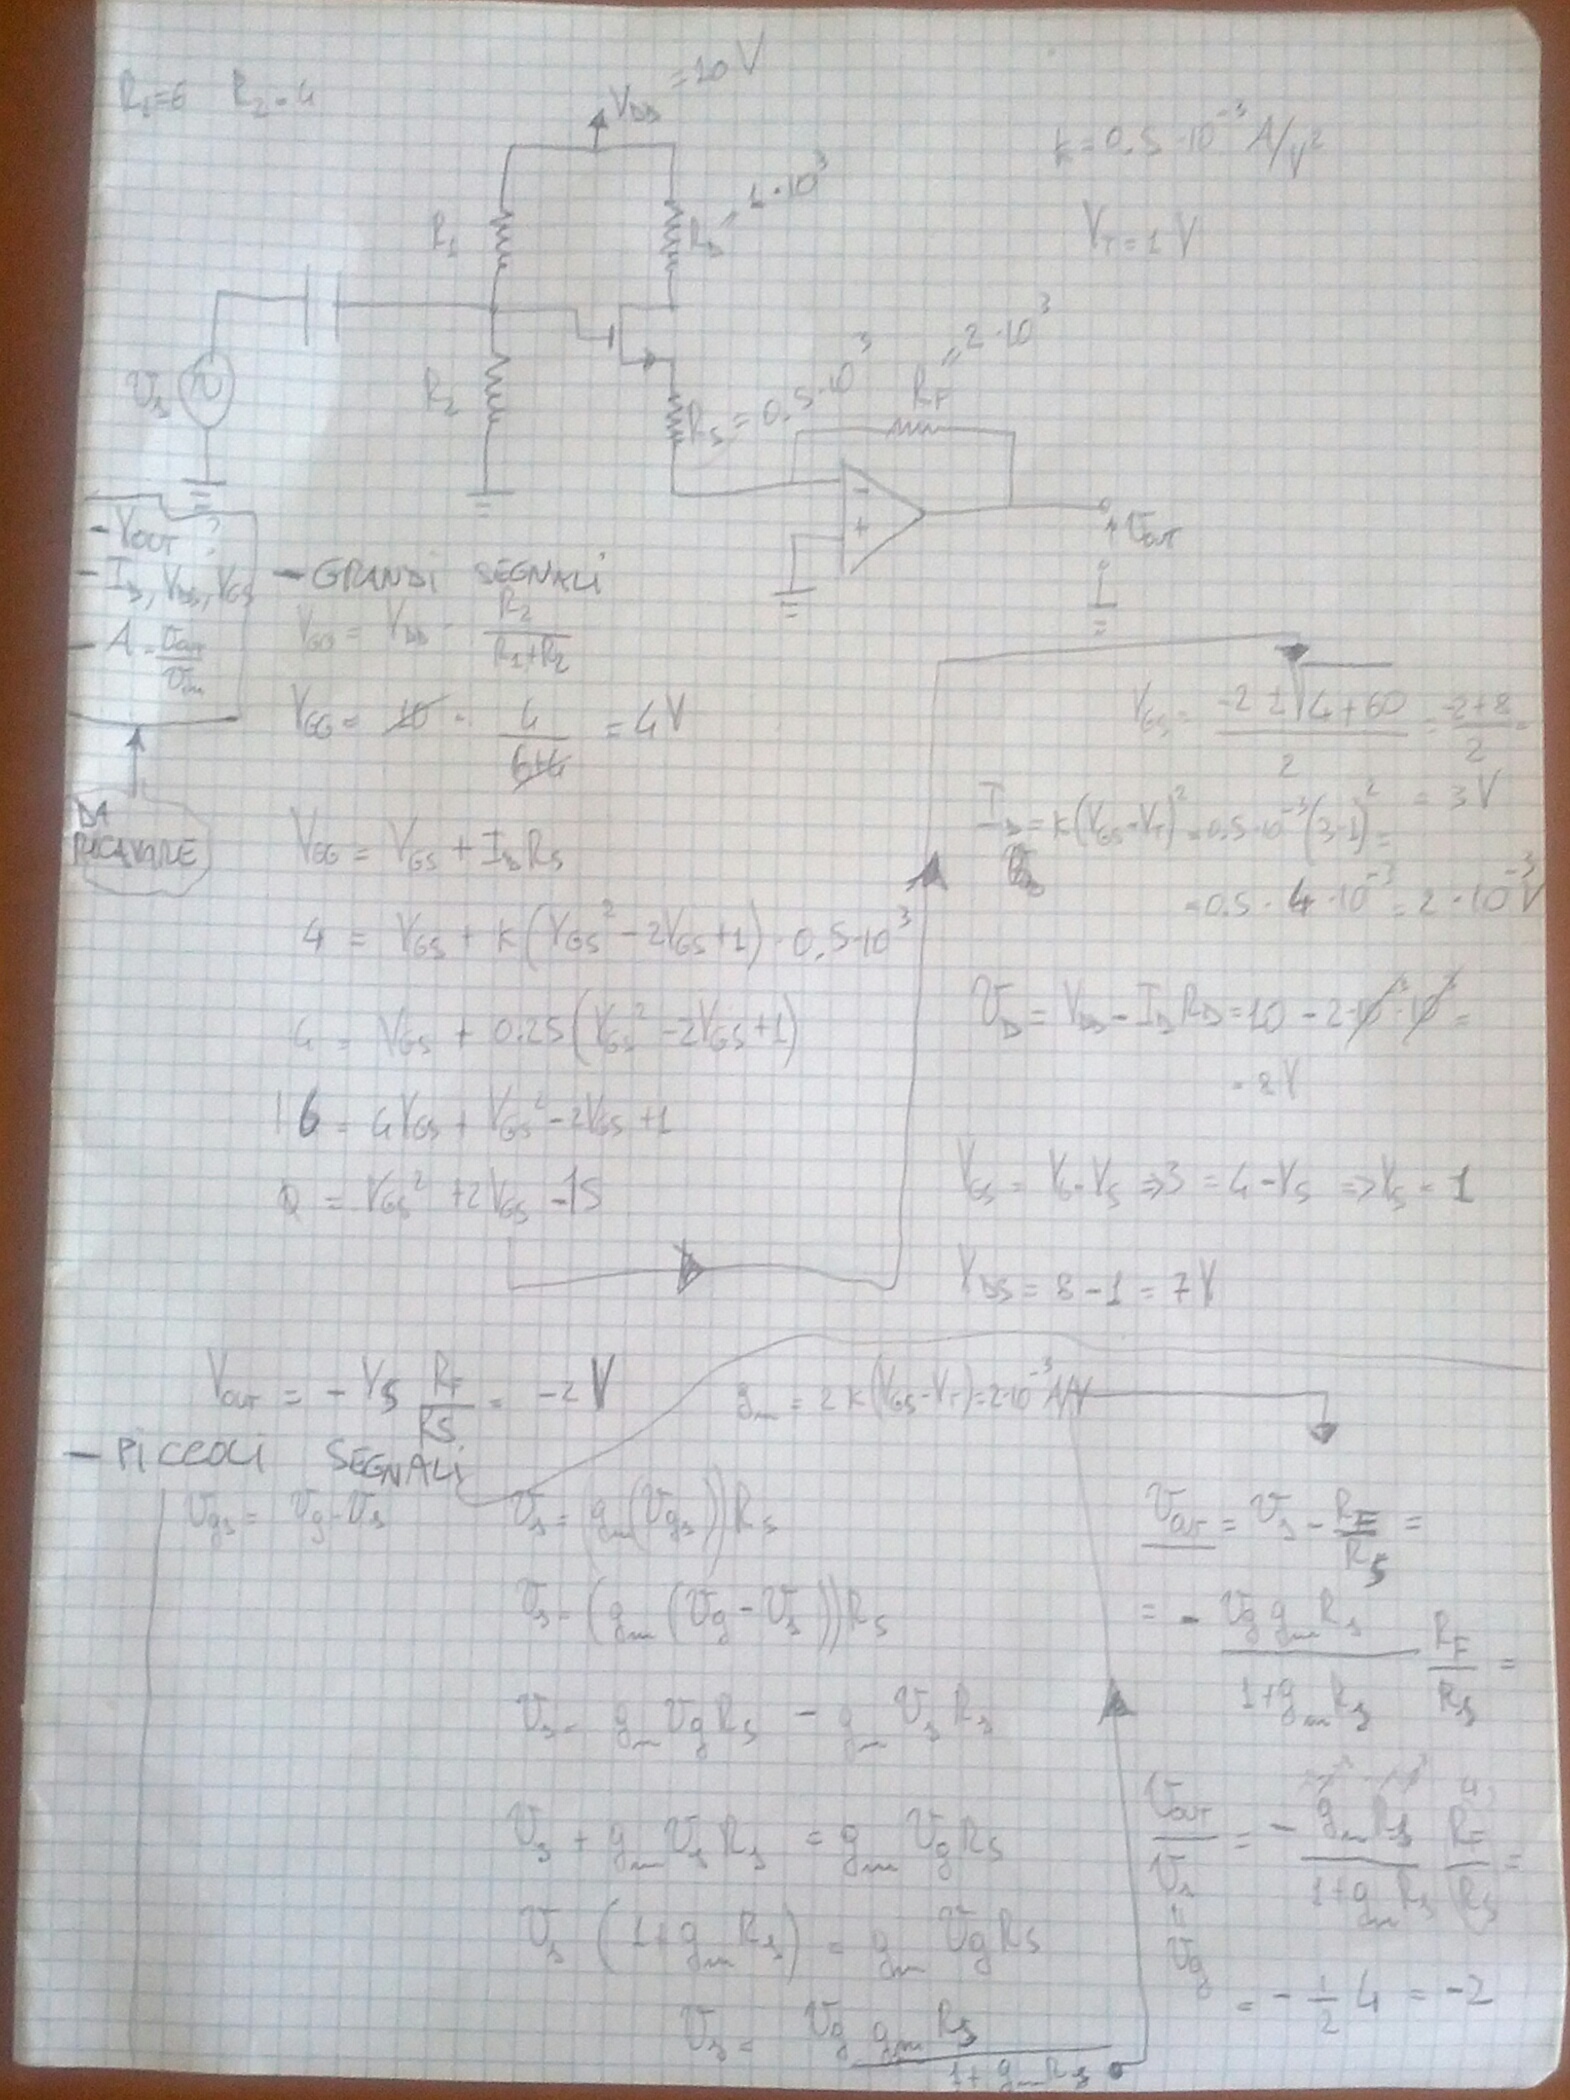 R₁=6 R₂=4
V_DD = 10 V
k = 0.5·10⁻³ A/V²
V_T = 1 V
R₁
R_D = 1·10³
R₂
R_S = 0.5·10³
R_F = 2·10³
v_s
-
+
v_OUT
- V_OUT ?
- I_D, V_DS, V_GS
- A = v_out/v_in
DA RICAVARE
- GRANDI SEGNALI
V_GG = V_DD · R₂/(R₁+R₂)
V_GG = 10 · 4/(6+4) = 4V
V_GG = V_GS + I_D R_S
4 = V_GS + k(V_GS² - 2V_GS + 1) · 0.5·10³
4 = V_GS + 0.25(V_GS² - 2V_GS + 1)
16 = 4V_GS + V_GS² - 2V_GS + 1
0 = V_GS² + 2V_GS - 15
V_GS = (-2 ± √(4+60))/2 = (-2+8)/2 =
= 3V
I_D = k(V_GS - V_T)² = 0.5·10⁻³(3-1)² =
= 0.5 · 4 · 10⁻³ = 2·10⁻³ V
V_D = V_DD - I_D R_D = 10 - 2·10⁻³·10³ =
= 8V
V_GS = V_G - V_S ⇒ 3 = 4 - V_S ⇒ V_S = 1
V_DS = 8 - 1 = 7V
V_OUT = - V_S R_F/R_S = -2V
g_m = 2k(V_GS - V_T) = 2·10⁻³ A/V
- PICCOLI SEGNALI
v_gs = v_g - v_s
v_s = (g_m(v_gs))R_s
v_s = (g_m(v_g - v_s))R_s
v_s = g_m v_g R_s - g_m v_s R_s
v_s + g_m v_s R_s = g_m v_g R_s
v_s (1 + g_m R_s) = g_m v_g R_s
v_s = v_g g_m R_s/(1 + g_m R_s)
v_OUT = v_s - R_F/R_S =
= - v_g g_m R_s/(1 + g_m R_s) R_F/R_s =
v_OUT/v_s = - g_m R_s/(1 + g_m R_s) R_F/R_s =
4
=
v_g
= - 1/2 4 = -2